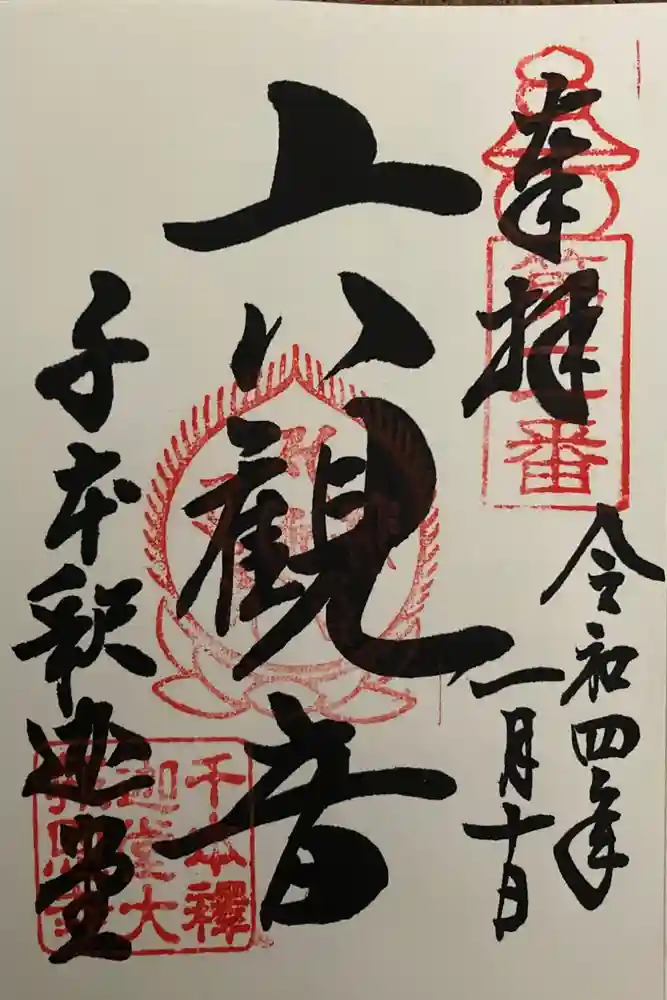 奉拝
第二番
令和四年
一月十日
六観音
千本釈迦堂
千本釋
迦堂大
報恩寺